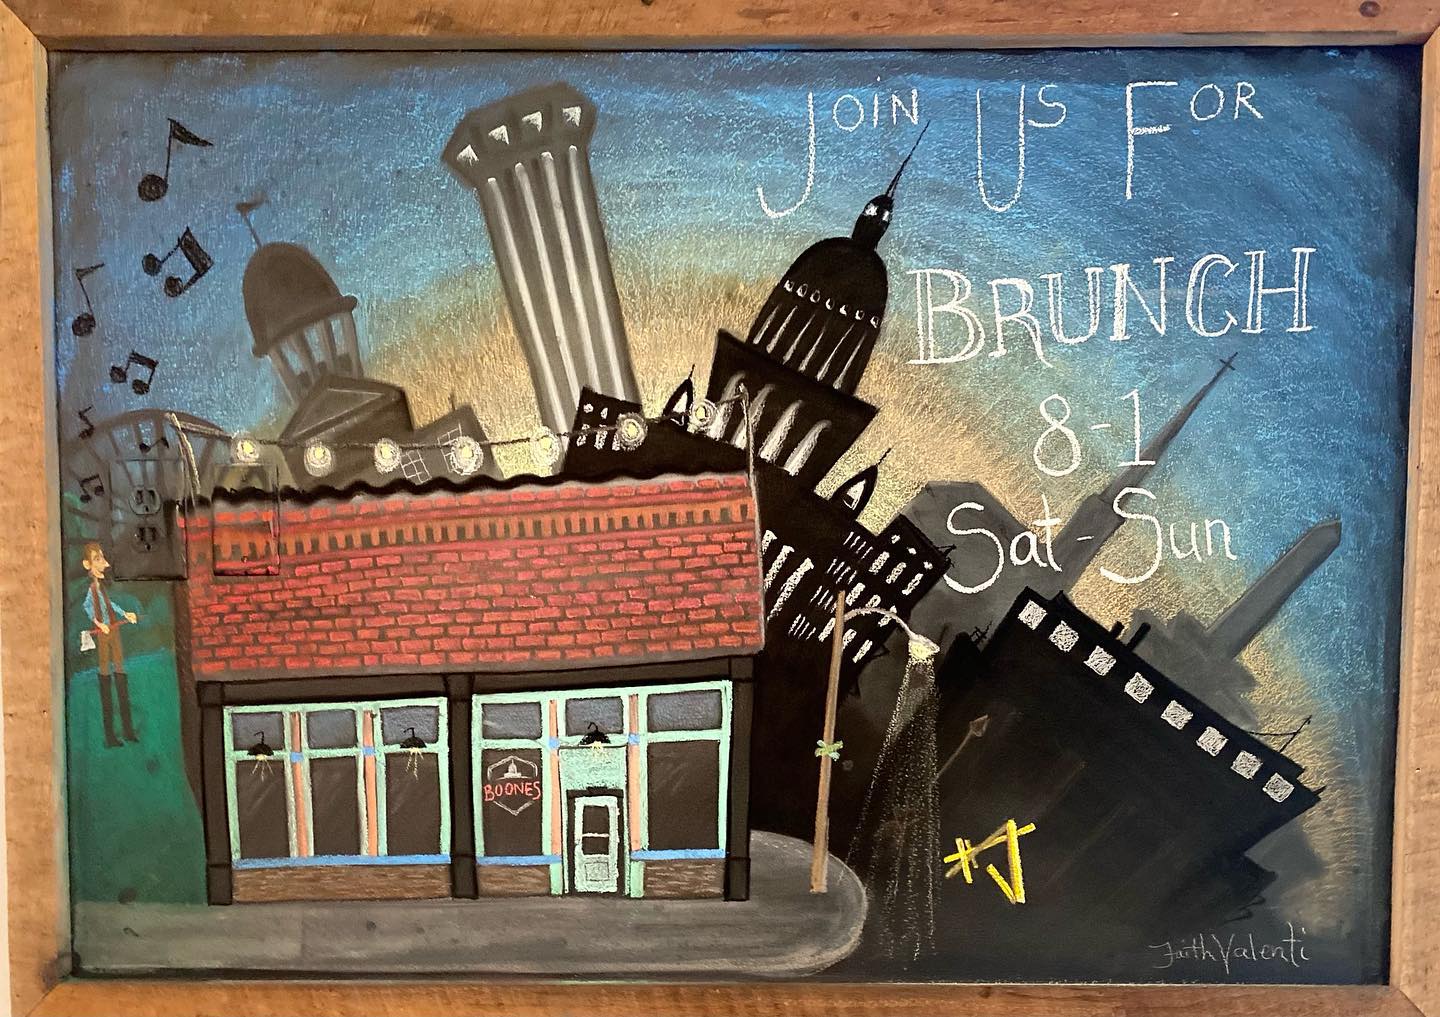 JOIN US FOR
BRUNCH
8-1
Sat-Sun
BOONES
*J
Faith Valenti